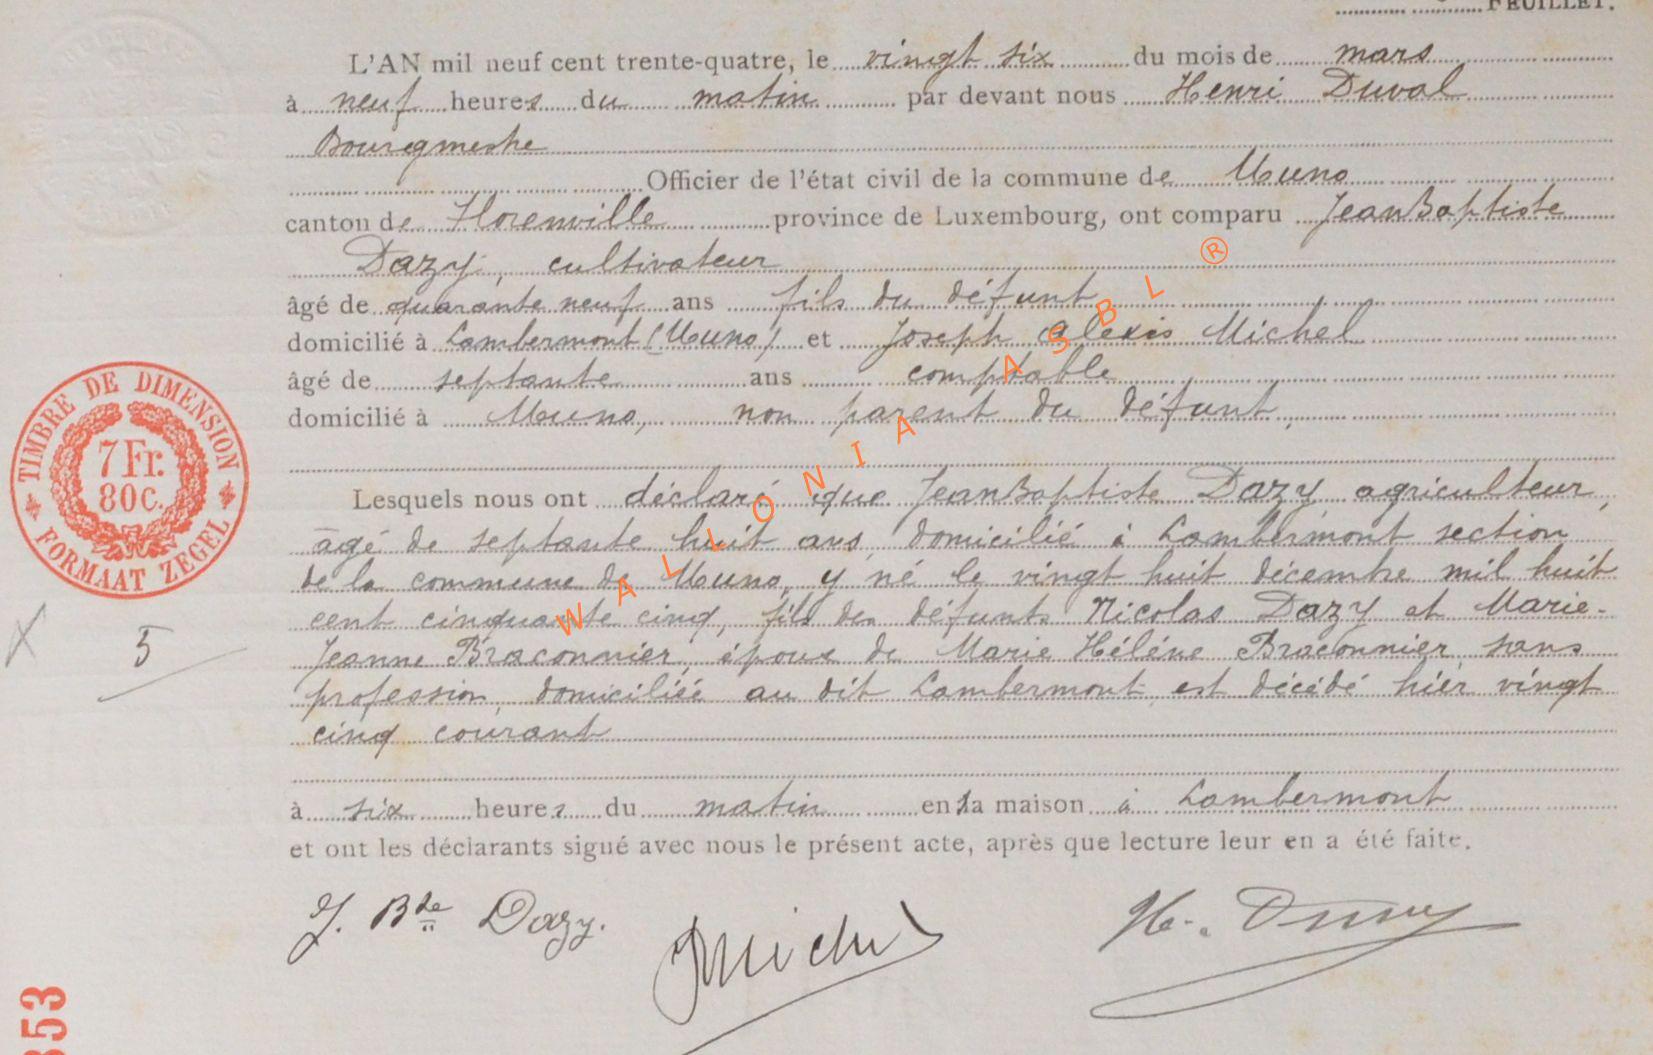 FEUILLET.
L'AN mil neuf cent trente-quatre, le vingt six du mois de mars
à neuf heures du matin par devant nous Henri Duval
Bourgmestre
Officier de l'état civil de la commune de Muno
canton de Florenville province de Luxembourg, ont comparu Jean Baptiste
Dazy, cultivateur
âgé de quarante neuf ans fils du défunt
domicilié à Lambermont (Muno) et Joseph Alexis Michel
âgé de septante ans comptable
domicilié à Muno, non parent du défunt,
Lesquels nous ont déclaré que Jean Baptiste Dazy agriculteur,
âgé de septante huit ans, domicilié à Lambermont section
de la commune de Muno, y né le vingt huit décembre mil huit
cent cinquante cinq, fils des défunts Nicolas Dazy et Marie-
Jeanne Braconnier, époux de Marie Hélène Braconnier, sans
profession, domiciliée au dit Lambermont, est décédé hier vingt
cinq courant
à six heures du matin en la maison à Lambermont
et ont les déclarants signé avec nous le présent acte, après que lecture leur en a été faite.
J. Bte Dazy.
JMichel
H. Duval
TIMBRE DE DIMENSION
7 Fr.
80 C.
FORMAAT ZEGEL
X 5
353
WALLONIA ASBL ®